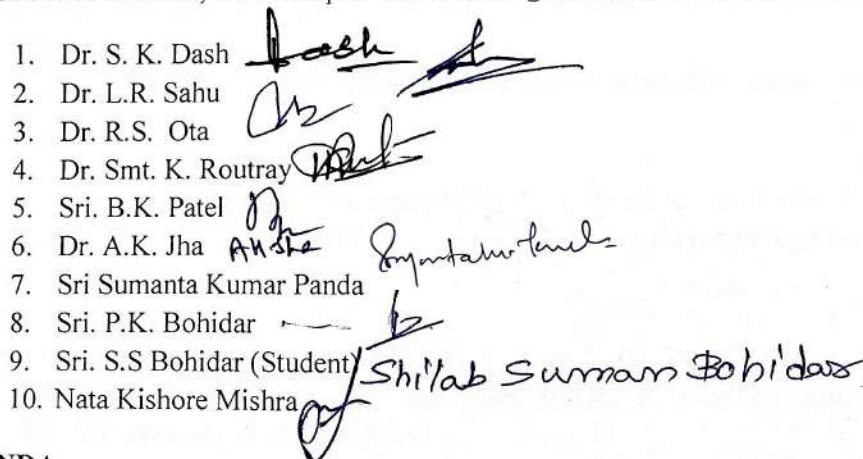 1. Dr. S. K. Dash Dash
2. Dr. L.R. Sahu
3. Dr. R.S. Ota
4. Dr. Smt. K. Routray
5. Sri. B.K. Patel
6. Dr. A.K. Jha AKJha
7. Sri Sumanta Kumar Panda
8. Sri. P.K. Bohidar
9. Sri. S.S Bohidar (Student) Shilab Suman Bohidar
10. Nata Kishore Mishra